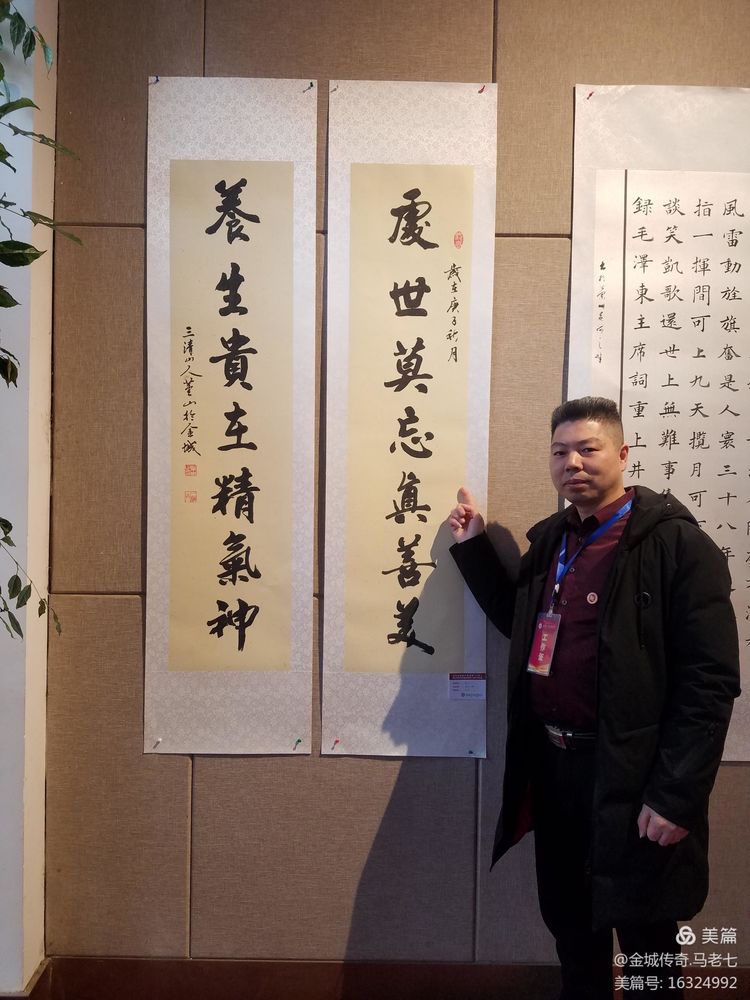 風雷動旌旗奮是人寰三十八年
指一揮間可上九天攬月可
談笑凱歌還世上無難事
録毛澤東主席詞重上井
處世莫忘眞善美
歲在庚子秋月
養生貴在精氣神
三清山人董山於金城
工作证
美篇
@金城传奇.马老七
美篇号: 16324992